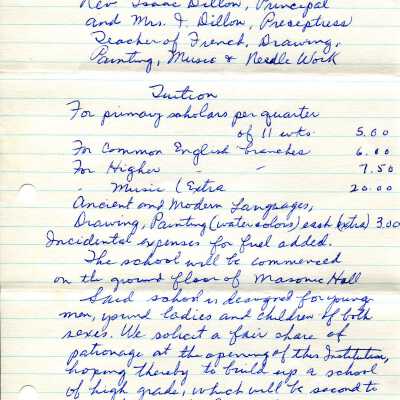 Rev. Isaac Dillon, Principal
and Mrs. I. Dillon, Preceptress
Teacher of French, Drawing,
Painting, Music & Needle Work
Tuition
For primary scholars per quarter
of 11 wks. 5.00
For Common English branches 6.00
For Higher " " 7.50
" Music (Extra 20.00
Ancient and Modern Languages,
Drawing, Painting (watercolors) each (extra) 3.00
Incidental expenses for fuel added.
The school will be commenced
on the ground floor of Masonic Hall
Said school is designed for young
men, young ladies and children of both
sexes. We solicit a fair share of
patronage at the opening of this Institution,
hoping thereby to build up a school
of high grade, which will be second to